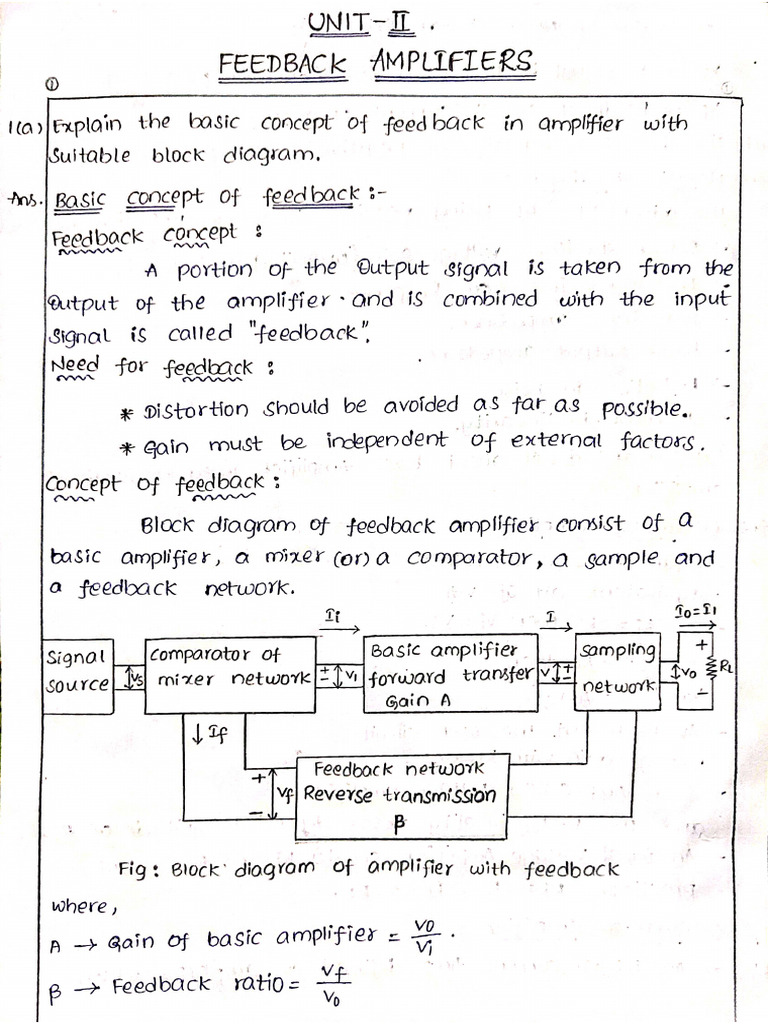 UNIT-II.
FEEDBACK AMPLIFIERS
①
1(a) Explain the basic concept of feedback in amplifier with
suitable block diagram.
Ans. Basic concept of feedback :-
Feedback concept :
A portion of the Output signal is taken from the
Output of the amplifier and is combined with the input
signal is called "feedback".
Need for feedback :
* Distortion should be avoided as far as possible.
* Gain must be independent of external factors.
Concept of feedback :
Block diagram of feedback amplifier consist of a
basic amplifier, a mixer (or) a comparator, a sample and
a feedback network.
Ii I Io=I1
Signal
source
Vs
Comparator of
mixer network
+
-
Vi
Basic amplifier
forward transfer
Gain A
V
+
-
Sampling
network
Vo
+
-
RL
If
+
-
Vf
Feedback network
Reverse transmission
β
Fig : Block diagram of amplifier with feedback
where,
A → Gain of basic amplifier = Vo/Vi .
β → Feedback ratio = Vf/Vo